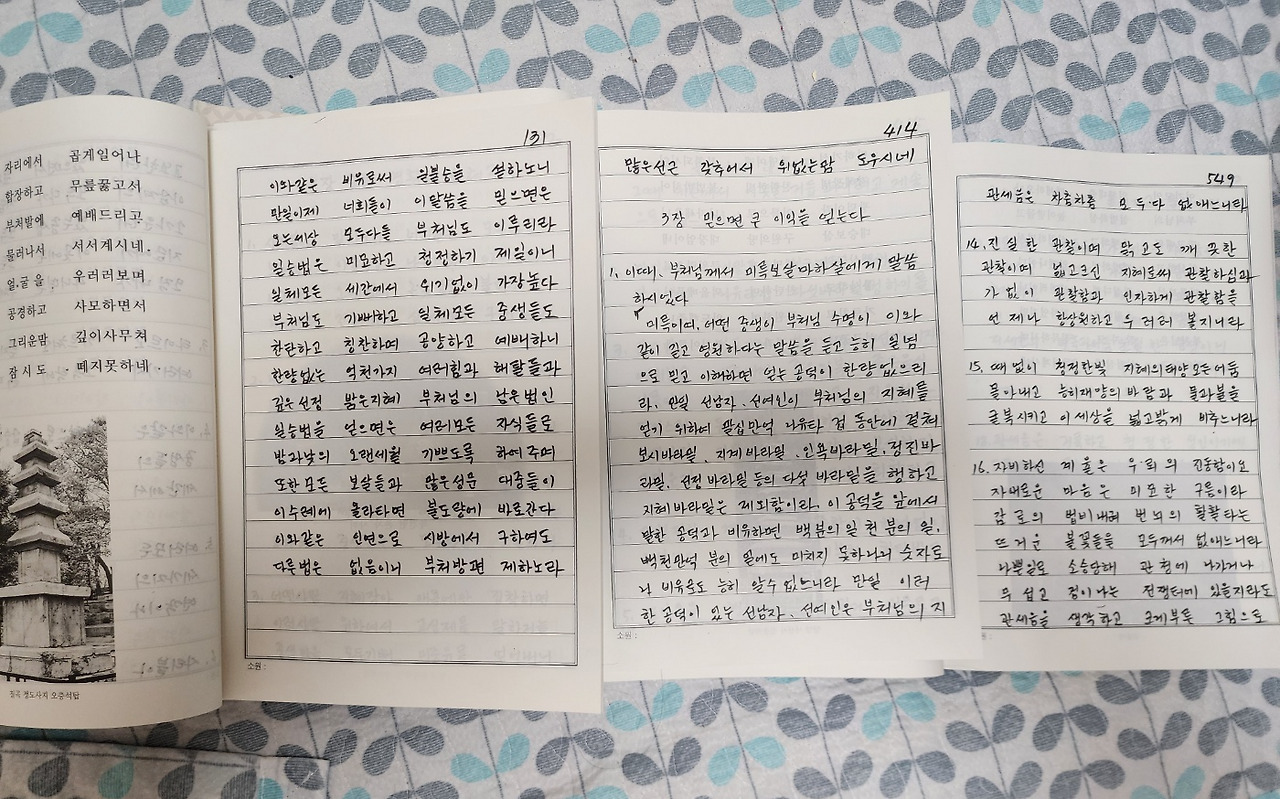 자리에서 곱게일어나
합장하고 무릎꿇고서
부처발에 예배드리고
물러나서 서서계시네.
얼굴을 우러러보며
공경하고 사모하면서
그리운맘 깊이사무쳐
잠시도 떼지못하네
칠곡 정도사지 오층석탑
131
이와같은 비유로써 일불승을 설하노니
만일이제 너희들이 이말씀을 믿으면은
오는세상 모두다들 부처님도 이루리라
일승법은 미묘하고 청정하기 제일이니
일체모든 세간에서 위기없이 가장높다
부처님도 기뻐하고 일체모든 중생들도
찬탄하고 칭찬하며 공양하고 예배하니
한량없는 억천가지 여러힘과 해탈들과
깊은선정 밝은지혜 부처님의 남은법인
일승법을 얻으면은 여러모든 자식들로
밤과낮의 오랜세월 기쁘도록 하여주며
또한모든 보살들과 많은성문 대중들이
이수레에 올라타면 불도량에 바로간다
이와같은 인연으로 시방에서 구하여도
다른법은 없음이니 부처방편 제하노라
소원 :
414
많은선근 갖추어서 위없는맘 도우시네
3장 믿으면 큰 이익을 얻는다
1. 이때, 부처님께서 미륵보살마하살에게 말씀
하시었다
미륵이여, 어떤 중생이 부처님 수명이 이와
같이 길고 영원하다는 말씀을 듣고 능히 일념
으로 믿고 이해하면 얻는 공덕이 한량 없으리
라. 만일 선남자, 선여인이 부처님의 지혜를
얻기 위하여 팔십만억 나유타 겁 동안에 걸쳐
보시바라밀, 지계바라밀, 인욕바라밀, 정진바
라밀, 선정 바라밀 등의 다섯 바라밀을 행하고
지혜바라밀은 제외함이라. 이 공덕을 앞에서
말한 공덕과 비유하면 백분의 일 천 분의 일,
백천만억 분의 일에도 미치지 못하나니 숫자로
나 비유로도 능히 알수 없느니라 만일 이러
한 공덕이 있는 선남자, 선여인은 부처님의 지
소원 :
549
관세음은 차츰차츰 모두다 없애느니라
14. 진실한 관찰이며 맑고도 깨끗한
관찰이며 넓고크신 지혜로써 관찰하심과
가없이 관찰함과 인자하게 관찰함을
언제나 항상원하고 우러러 볼지니라
15. 때없이 청정한빛 지혜의태양 모든어둠
몰아내고 능히재앙의 바람과 불과물을
굴복시키고 이세상을 넓고밝게 비추느니라
16. 자비하신 계율은 우뢰의 진동함이요
자애로운 마음은 미묘한 구름이라
감로의 법비내려 번뇌의 훨훨타는
뜨거운 불꽃들을 모두꺼서 없애느니라
나쁜일로 소송당해 관청에 나가거나
무섭고 겁이나는 전쟁터에 있을지라도
관세음을 생각하고 크게부른 그힘으로